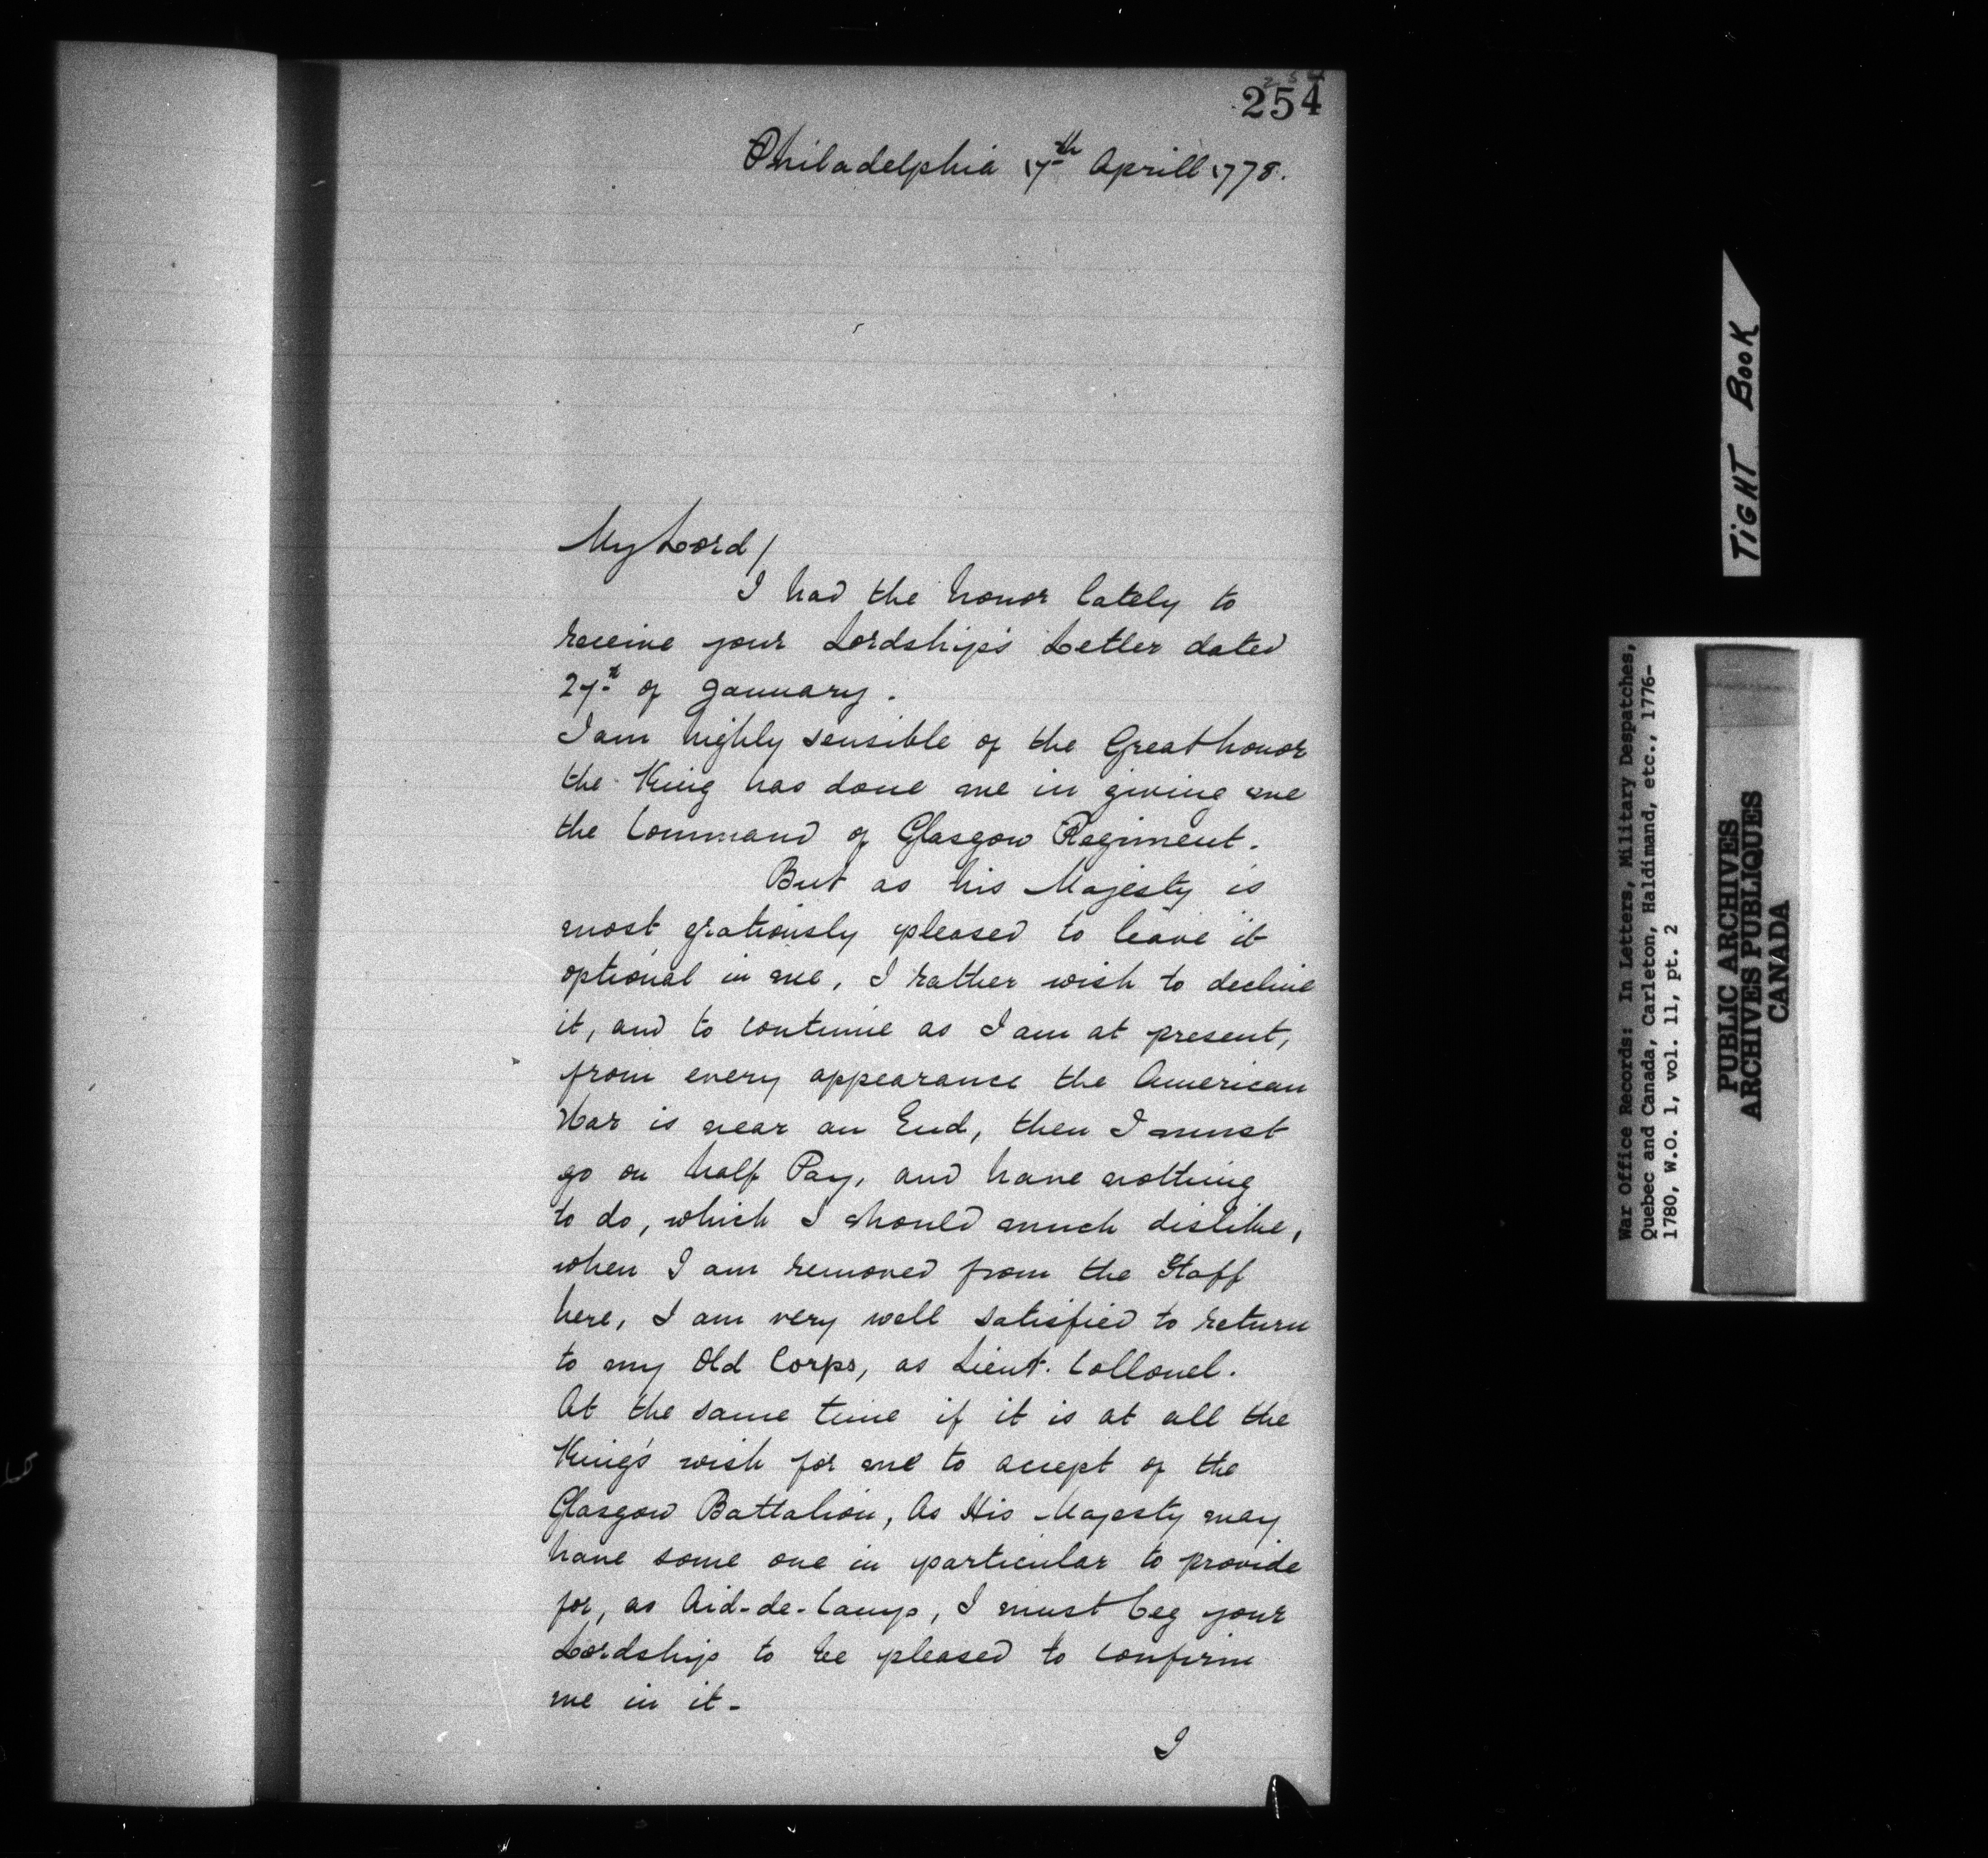 254
Philadelphia 17th Aprill 1778.
My Lord/
I had the honor lately to
receive your Lordship's Letter dated
27th of January.
I am highly sensible of the Great honor
the King has done me in giving me
the Command of Glasgow Regiment.
But as his Majesty is
most gratiously pleased to leave it
optional in me, I rather wish to decline
it, and to continue as I am at present,
from every appearance the American
War is near an End, then I must
go on half Pay, and have nothing
to do, which I should much dislike,
when I am removed from the Staff
here, I am very well satisfied to return
to my Old Corps, as Lieut. Collonel.
At the same time if it is at all the
King's wish for me to accept of the
Glasgow Battalion, As His Majesty may
have some one in particular to provide
for, as Aid-de-Camp, I must beg your
Lordship to be pleased to confirm
me in it-
I
TIGHT BOOK
War Office Records: In Letters, Military Despatches,
Quebec and Canada, Carleton, Haldimand, etc., 1776-
1780, W.O. 1, vol. 11, pt. 2
PUBLIC ARCHIVES
ARCHIVES PUBLIQUES
CANADA